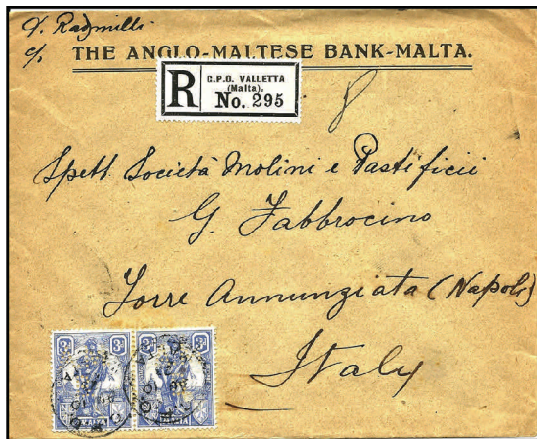 J. Radmilli
c/o THE ANGLO-MALTESE BANK-MALTA.
R
G.P.O. VALLETTA
(Malta).
No. 295
Spett. Società Molini e Pastificii
G. Fabbrocino
Torre Annunziata (Napoli)
Italy
3d 3d
MALTA